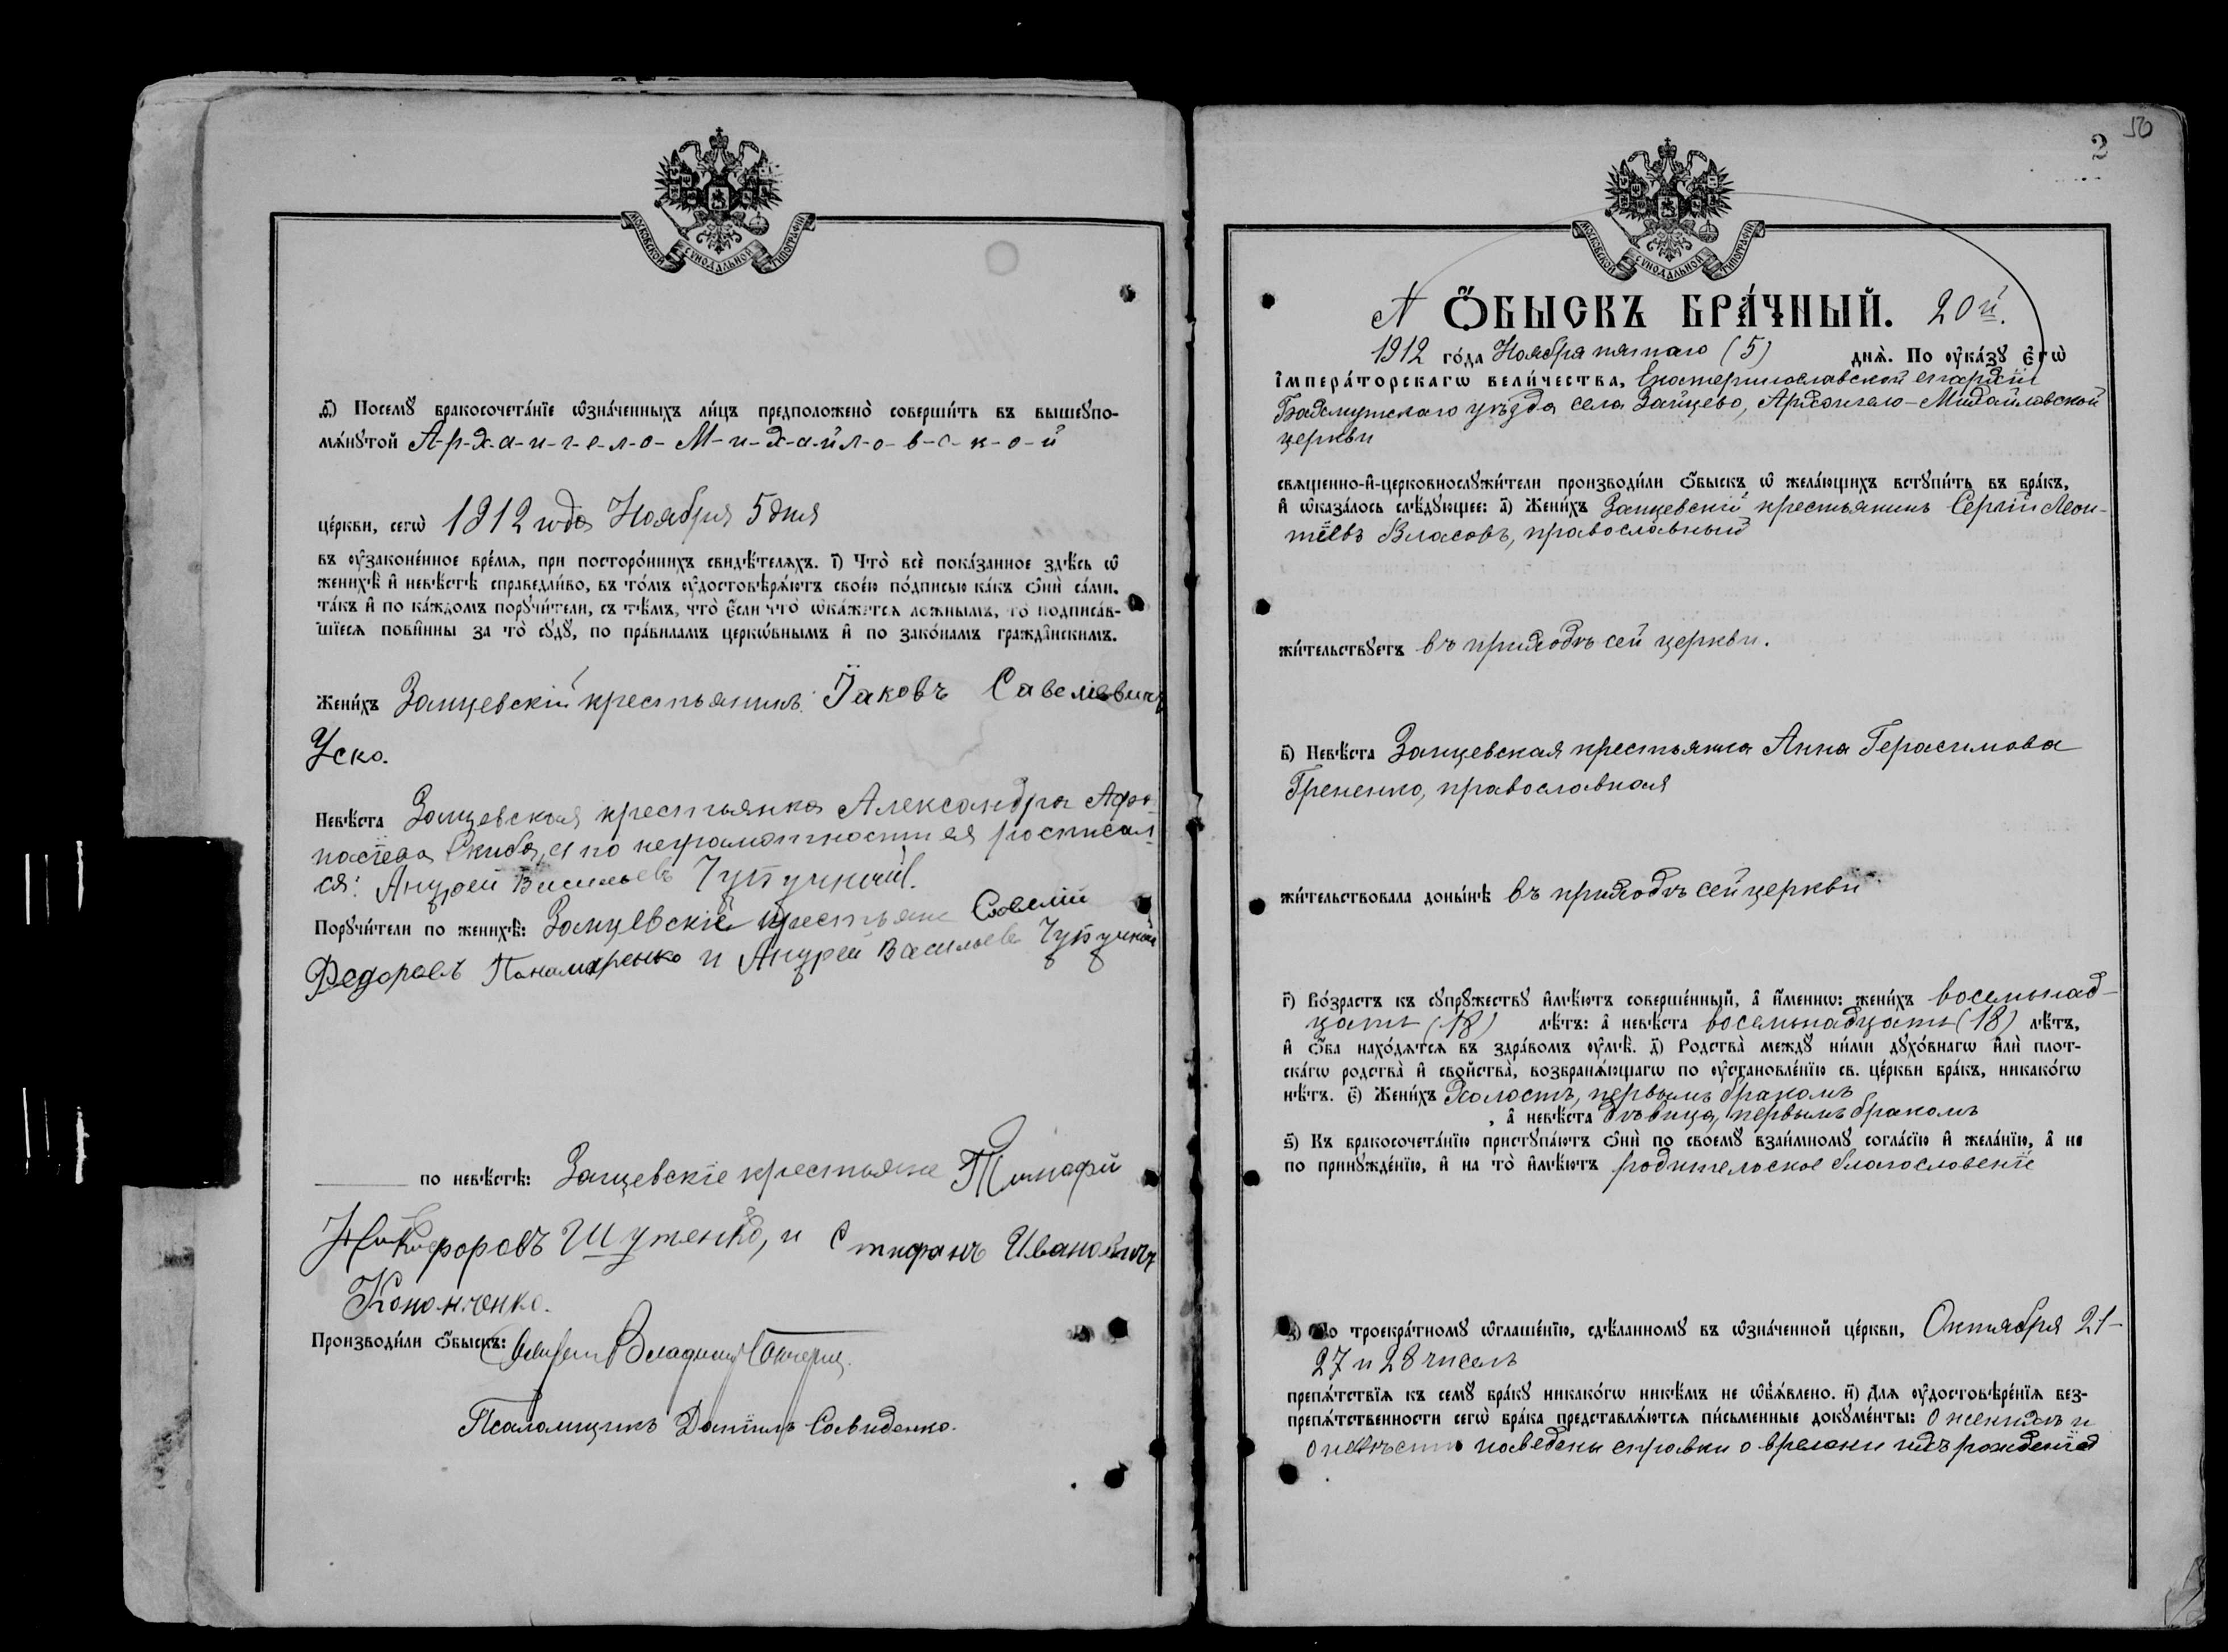 МОСКОВСКОЙ СѴНОДАЛЬНОЙ ТИПОГРАФІИ
ѳ҃) Посемꙋ бракосочета́нїе ѡ҆зна́ченныхъ ли́цъ предположено̀ соверши́ть въ вышеупо-
мѧ́нꙋтой А-р-х-а-н-г-е-л-о- М-и-х-а-й-л-о-в-с-к-о-й
це́ркви, сегѡ̀ 1912 года Ноября 5 дня
въ ᲂу҆законе́нное вре́мѧ, при посторо́ннихъ свидѣ́телѧхъ. і҃) Что̀ всѐ пока́занное здѣ́сь ѡ҆
женихѣ̀ и҆ невѣ́стѣ справедли́во, въ то́мъ ᲂу҆достовѣрѧ́ютъ свое́ю по́дписью ка́къ ѻ҆нѝ са́ми,
та́къ и҆ по ка́ждомъ порꙋчи́тели, съ тѣ́мъ, что̀ є҆́сли что̀ ѡ҆ка́жетсѧ ло́жнымъ, то̀ подписа́в-
шїесѧ пови́нны за то̀ сꙋдꙋ̀, по пра́виламъ церкѡ́внымъ и҆ по зако́намъ гражда́нскимъ.
Жени́хъ Зайцевскій крестьянинъ Іаковъ Савеліевичъ
Уско.
Невѣ́ста Зайцевская крестьянка Александра Афа-
насіева Скиба, а по неграмотности ея росписал-
ся: Андрей Васильевъ
Порꙋчи́тели по женихѣ̀: Зайцевскіе крестьяне Савелій
Федоровъ Панамаренко и Андрей Васильевъ
по невѣ́стѣ: Зайцевскіе крестьяне Тимофей
Никифоровъ Шутенко, и Стифанъ Ивановичъ
Кононченко.
Производи́ли ѻ҆́быскъ: Владимир
Псаломщикъ Даніилъ Савиденко.
50
2
МОСКОВСКОЙ СѴНОДАЛЬНОЙ ТИПОГРАФІИ
№ Ѻ҆́БЫСКЪ БРА́ЧНЫЙ. 20й.
1912 го́да Ноября пятаго (5) днѧ̀. По ᲂу҆ка́зꙋ Є҆гѡ̀
І҆мпера́торскагѡ вели́чества, Екатеринославской епархіи
Бахмутскаго уѣзда села Зайцево, Архангело-Михайловской
церкви
свѧще́нно-и҆-церковнослꙋжи́тели производи́ли ѻ҆́быскъ ѡ҆ жела́ющихъ встꙋпи́ть въ бра́къ,
и҆ ѡ҆каза́лось слѣ́дꙋющее: а҃) Жени́хъ Зайцевскій крестьянинъ Сергій Леон-
тіевъ Власовъ, православный
жи́тельствꙋетъ въ приходѣ сей церкви.
в҃) Невѣ́ста Зайцевская крестьянка Анна Герасимова
Грененко, православная
жи́тельствовала доны́нѣ въ приходѣ сей церкви
г҃) Во́зрастъ къ сꙋпрꙋ́жествꙋ и҆мѣ́ютъ соверше́нный, а҆ и҆́меннѡ: жени́хъ восемнад-
цати (18) лѣ́тъ: а҆ невѣ́ста восемнадцати (18) лѣ́тъ,
и҆ ѻ҆́ба нахо́дѧтсѧ въ здра́вомъ ᲂу҆мѣ̀. д҃) Родства̀ междꙋ ни́ми дꙋхо́внагѡ и҆лѝ плот-
ска́гѡ родства̀ и҆ свойства̀, возбранѧ́ющагѡ по ᲂу҆становле́нїю св. це́ркви бра́къ, никако́гѡ
нѣ́тъ. є҃) Жени́хъ Холостъ, первымъ бракомъ
, а҆ невѣ́ста дѣвица, первымъ бракомъ
ѕ҃) Къ бракосочета́нїю пристꙋпа́ютъ ѻ҆нѝ по своемꙋ̀ взаи́мномꙋ согла́сїю и҆ жела́нїю, а҆ не
по принꙋжде́нїю, и҆ на то̀ и҆мѣ́ютъ родительское благословеніе
з҃) По троекра́тномꙋ ѡ҆глаше́нїю, сдѣ́ланномꙋ въ ѡ҆зна́ченной це́ркви, Октября 21-
27 и 28 чиселъ
препѧ́тствїѧ къ семꙋ̀ бра́кꙋ никако́гѡ никѣ́мъ не ѡ҆б̾ѧ́влено. и҃) Длѧ ᲂу҆достовѣре́нїѧ без-
препѧ́тственности сегѡ̀ бра́ка представлѧ́ютсѧ пи́сьменные докꙋме́нты: О женихѣ и
о невѣстѣ наведены справки о времени ихъ рожденія